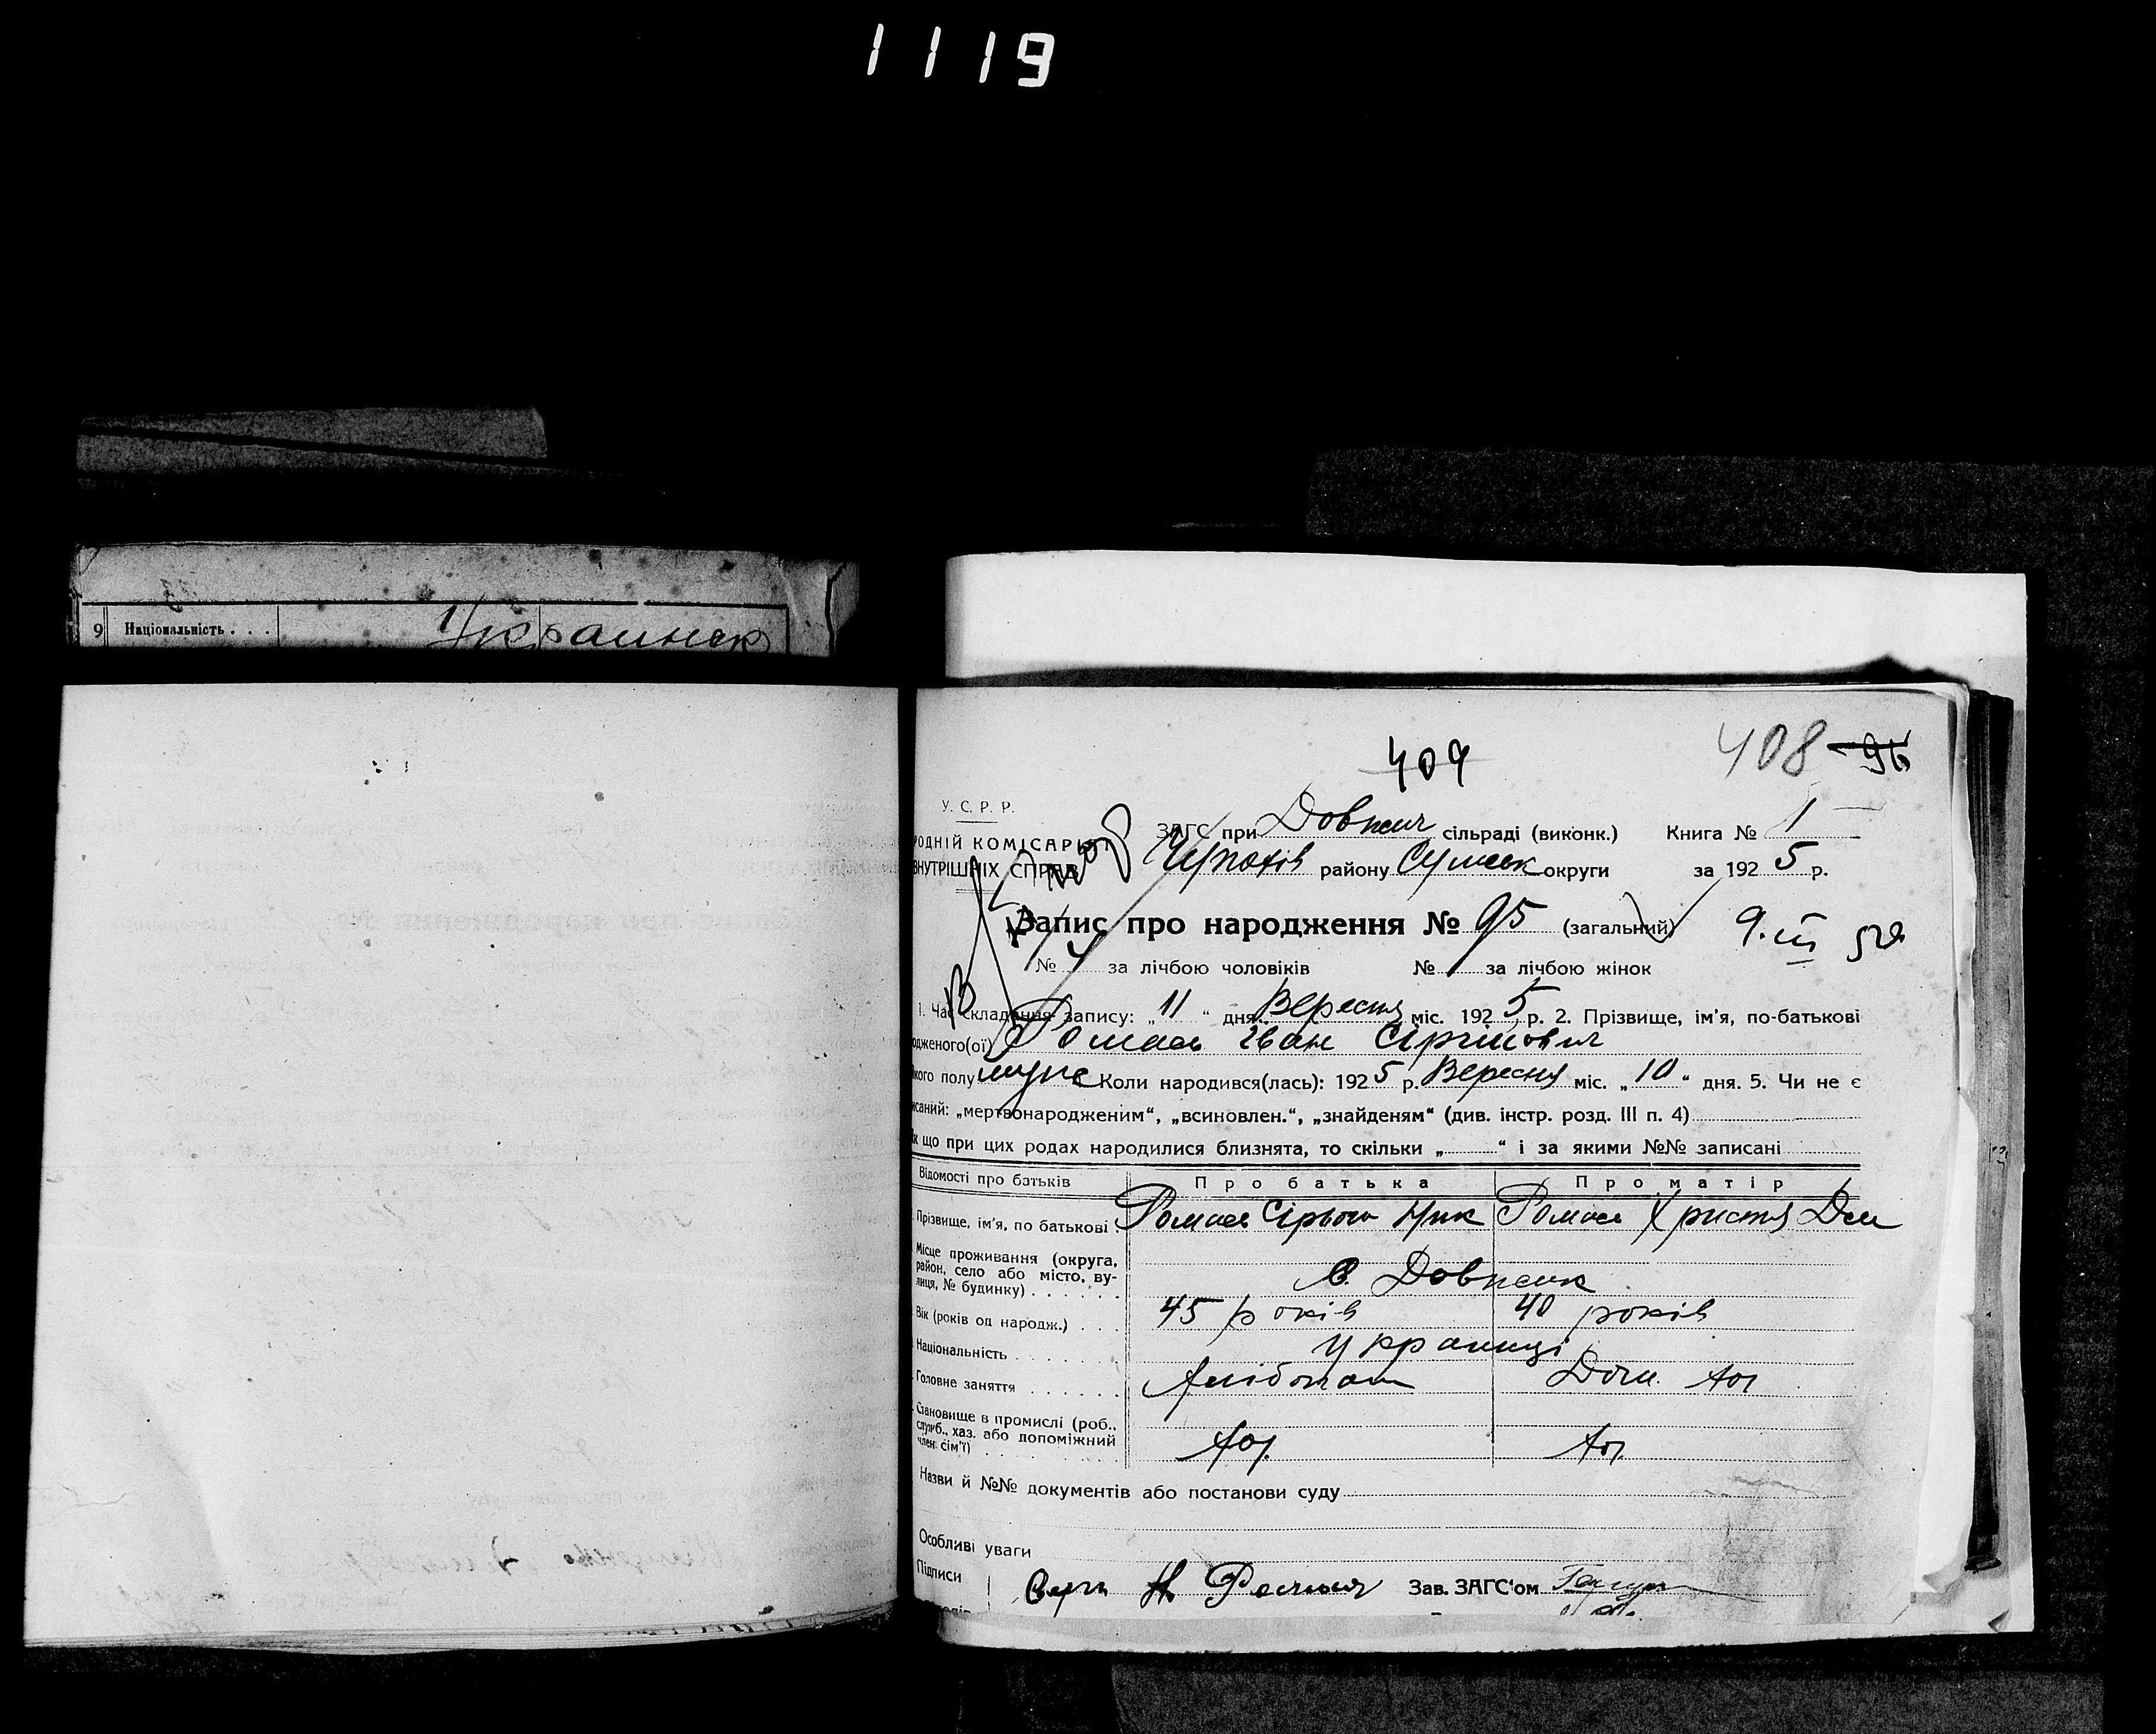 1119
9 Національність . . . Украинск
409
408 96
У. С. Р. Р.
РОДНІЙ КОМІСАРІЯТ
ВНУТРІШНІХ СПРАВ
ЗАГС при Довжич сільраді (виконк.) Книга № 1
району Сумськ округи за 192 5 р.
Запис про народження № 95 (загальний) 9.III 52я
№ за лічбою чоловіків № за лічбою жінок
1. Час складання запису: „ 11 “ дня Вересня міс. 192 5 р. 2. Прізвище, ім'я, по-батькові
одженого(ої) Ромась Іван Сіргійович
якого полу муж Коли народився(лась): 192 5 р. Вересня міс. „ 10 “ дня. 5. Чи не є
исаний: „мертвонародженим“, „всиновлен.“, „знайденям“ (див. інстр. розд. III п. 4)
Як що при цих родах народилися близнята, то скільки „ “ і за якими №№ записані
Відомості про батьків Про батька Про матір
Прізвище, ім'я, по батькові . Ромась Сірьога Ник Ромась Христя Дем
Місце проживання (округа,
район, село або місто, ву-
лиця, № будинку) . . . . . . С. Довжик
Вік (років од народж.) . . . 45 років 40 років
Національність . . . . . . . українці
Головне заняття . . . . . . Хлібопаш Дом. Хоз
Становище в промислі (роб.,
служб., хаз. або допоміжний
член сім'ї) . . . Хоз. Хоз.
Назви й №№ документів або постанови суду
Особливі уваги
Підписи Зав. ЗАГС'ом